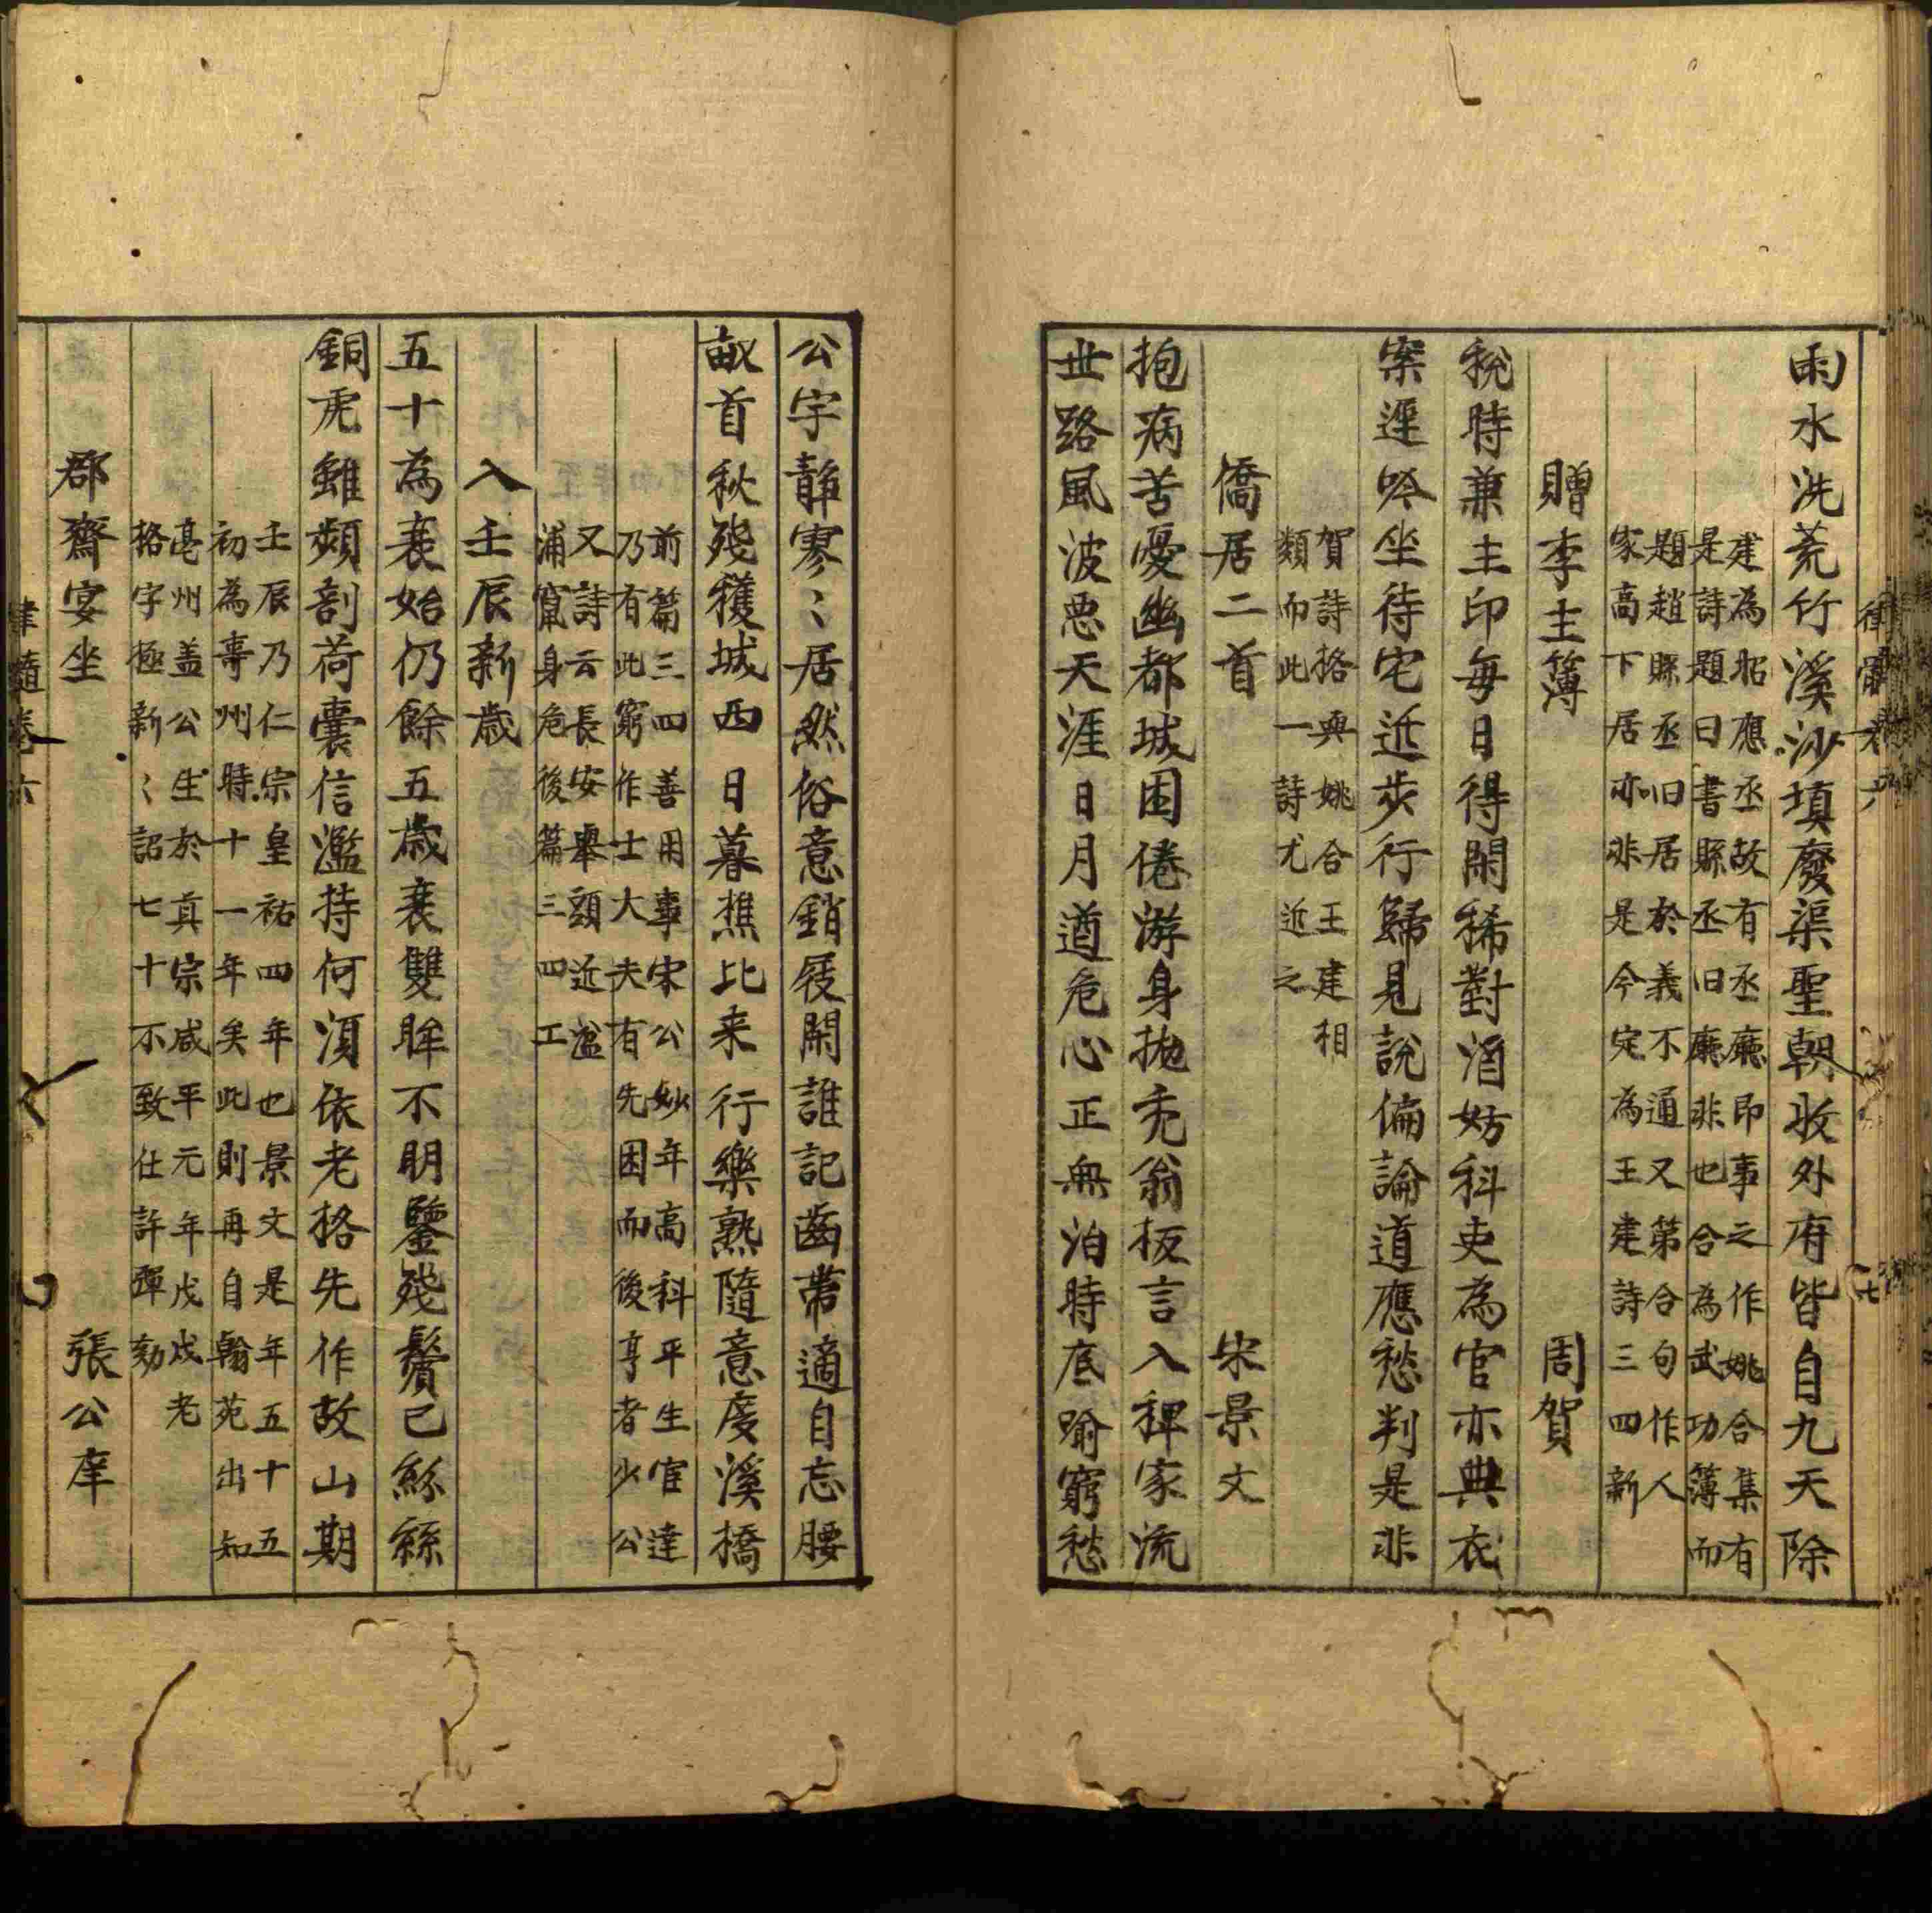 雨水洗荒竹溪沙填廢渠聖朝收外府皆自九天除
建為昭應丞故有丞廳即事之作姚合集有
是詩題曰書縣丞旧廳非也合為武功簿而
題趙縣丞旧居於義不通又第合句作人
家高下居亦非是今定為王建詩三四新
贈李主簿 周賀
稅時兼主印每日得閑稀對酒妨料吏為官亦典衣
案遲吟坐待宅近步行歸見說偏論道應愁判是非
賀詩格與姚合王建相
類而此一詩尤近之
僑居二首 宋景文
抱病苦憂幽都城困倦游身拋禿翁板言入稗家流
世路風波惡天涯日月遒危心正無泊時底踰窮愁
公宇静寥〻居然俗意銷屐閑誰記齒帶適自忘腰
畝首秋殘穫城西日暮樵比来行樂熟隨意度溪橋
前篇三四善用事宋公妙年高科平生宦達
乃有此窮作士大夫有先困而後亨者少公
又詩云長安舉頭近湓
浦竄身危後篇三四工
入壬辰新歲
五十為衰始仍餘五歲衰雙眸不明鑒殘鬢已紛絲
銅虎雖頻剖荷囊信濫持何須依老格先作故山期
壬辰乃仁宗皇祐四年也景文是年五十五
初為壽州時十一年矣此則再自翰苑出知
亳州盖公生於真宗咸平元年戊戌老
格字極新〻詔七十不致仕許彈劾
郡齋宴坐 張公庠
律髓卷六